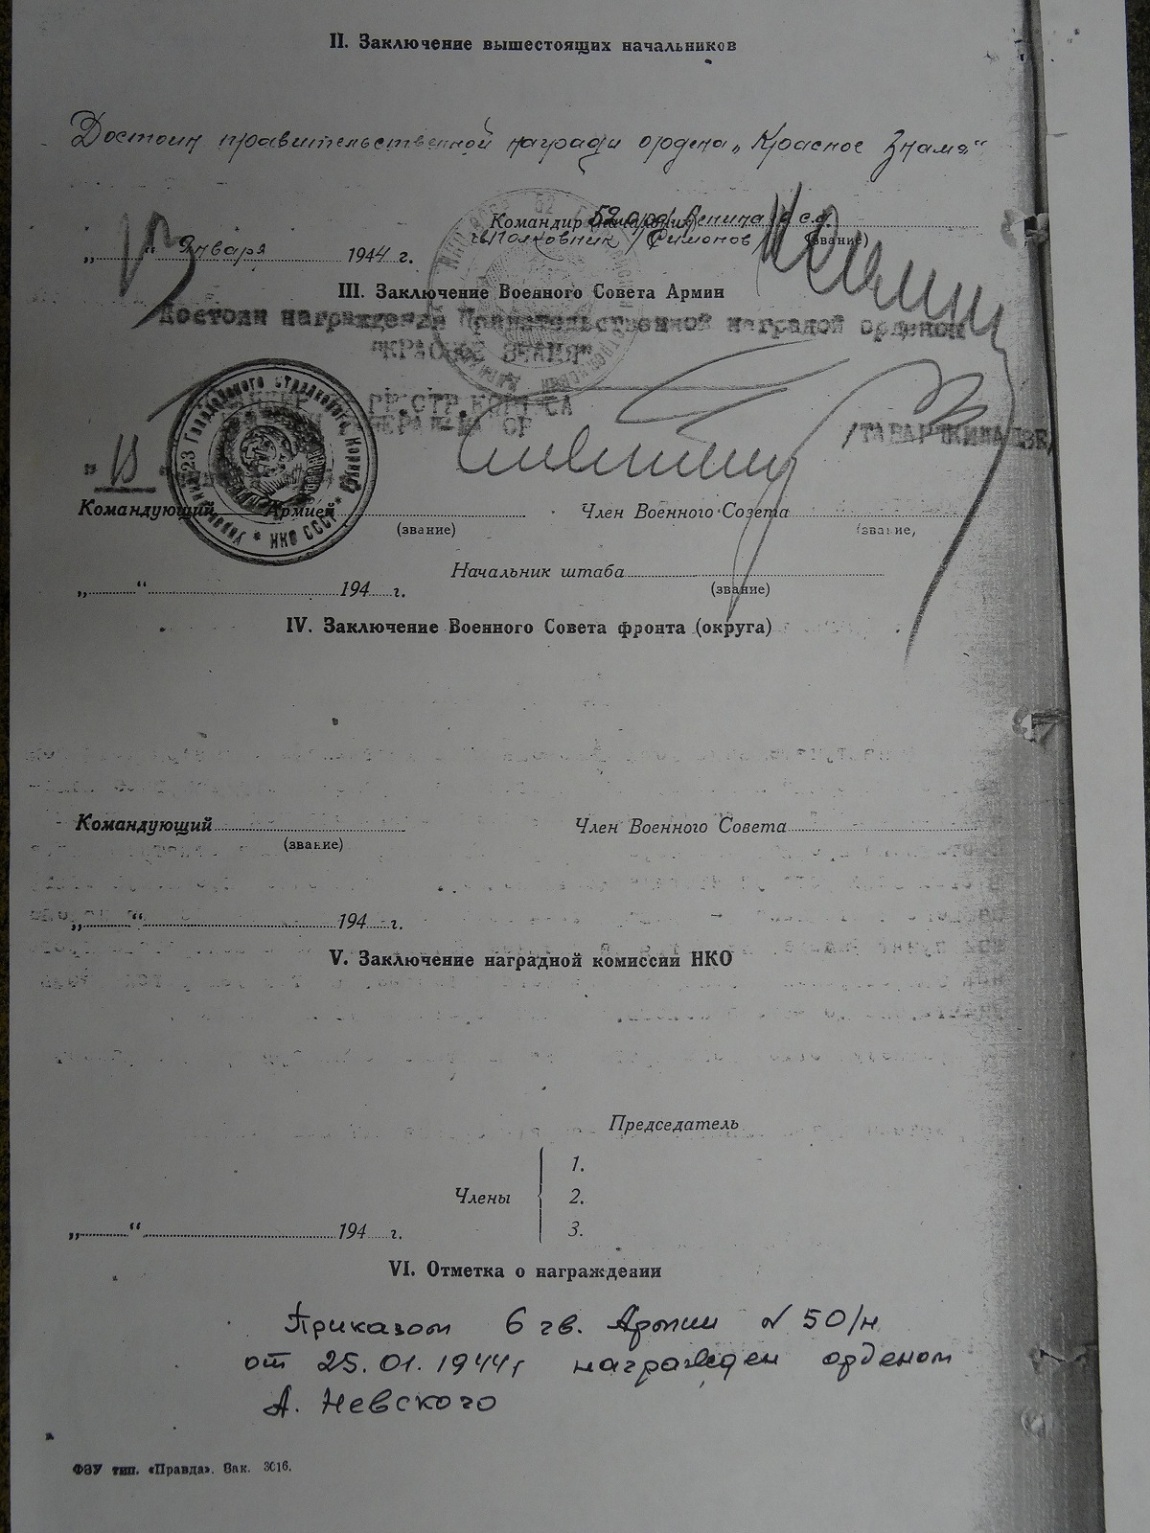 II. Заключение вышестоящих начальников
Достоин правительственной награды ордена „Красное Знамя“
Командир 52 орд. Ленина с.д.
п/полковник /Филионов (звание)
„ “ Января 1944 г.
III. Заключение Военного Совета Армии
Достоин награждения Правительственной наградой орденом
"КРАСНОЕ ЗНАМЯ"
" 13 "
/ТАВАРТКИЛАДЗЕ/
Командующий Армией Член Военного Совета
(звание) (звание)
Начальник штаба
(звание)
„ “ 194 г.
IV. Заключение Военного Совета фронта (округа)
Командующий Член Военного Совета
(звание)
„ “ 194 г.
V. Заключение наградной комиссии НКО
Председатель
1.
Члены 2.
3.
„ “ 194 г.
VI. Отметка о награждении
Приказом 6 гв. Армии N 50/н
от 25.01.1944г награжден орденом
А. Невского
ФЗУ тип. «Правда». Зак. 3616.